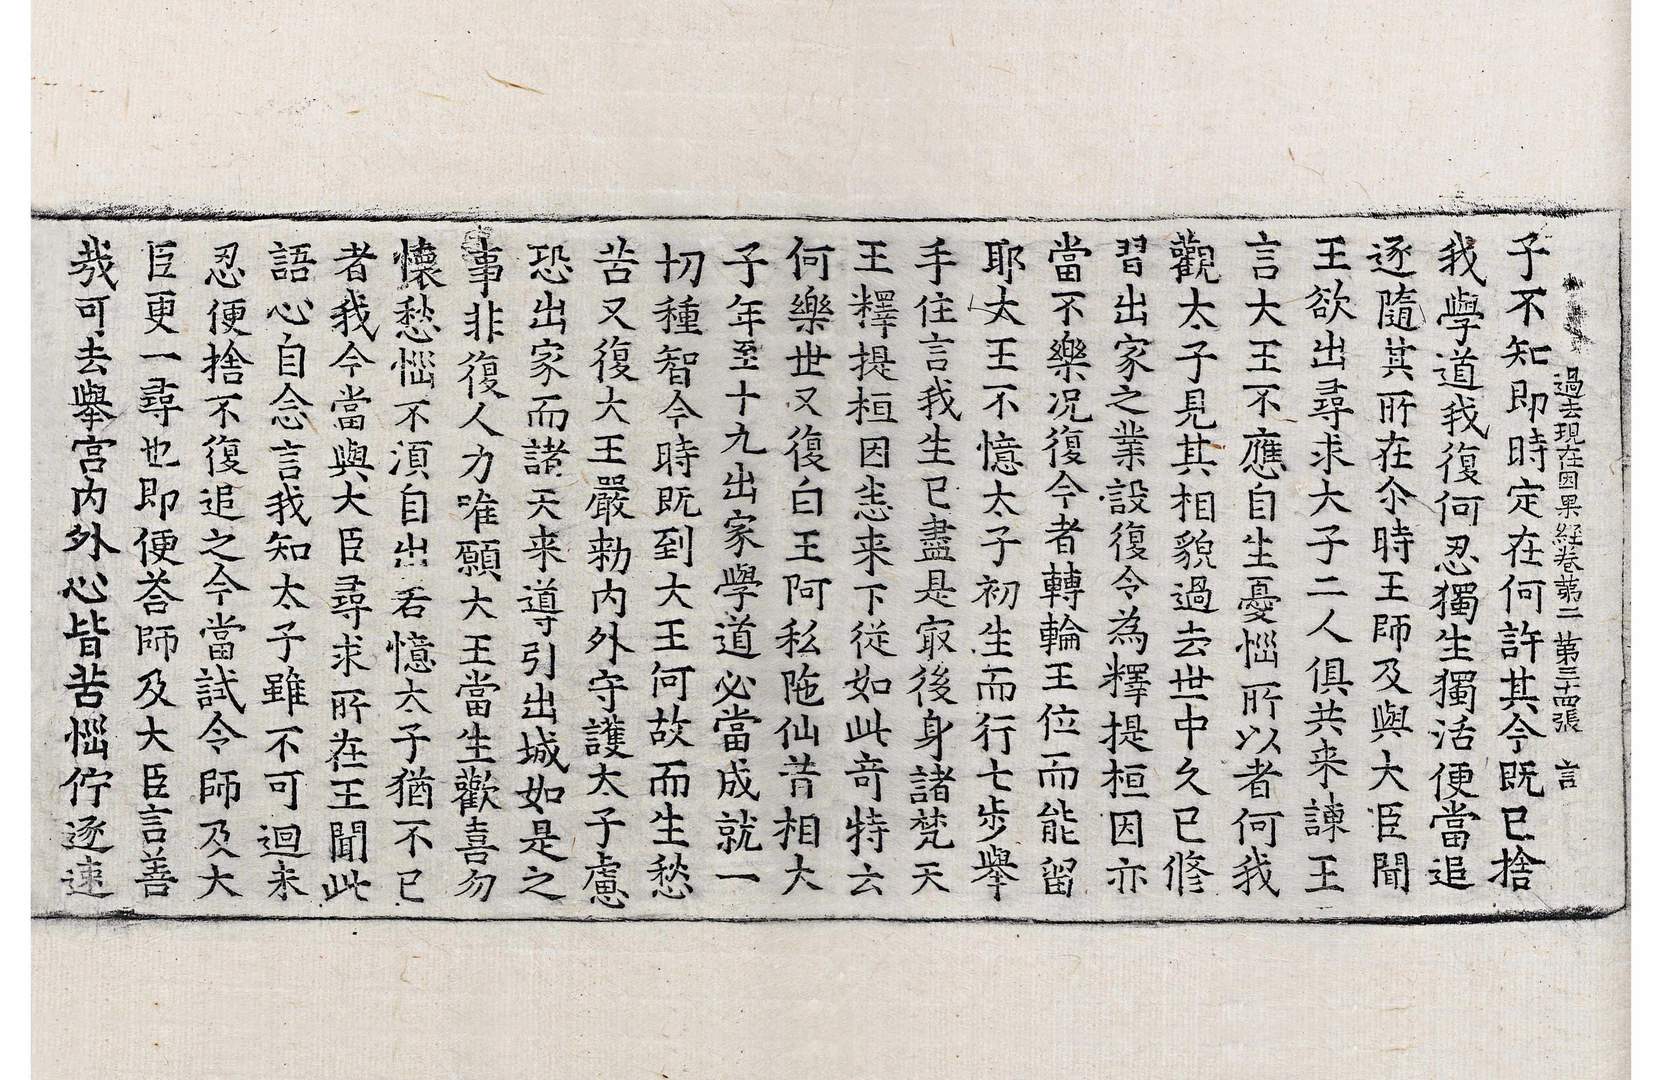 過去現在因果経卷第二 第三十四張 言
子不知即時定在何許其今既已捨
我學道我復何忍獨生獨活便當追
逐隨其所在尒時王師及與大臣聞
王欲出尋求大子二人俱共来諫王
言大王不應自生憂惱所以者何我
觀太子見其相貌過去世中久已修
習出家之業設復令為釋提桓因亦
當不樂况復今者轉輪王位而能留
耶大王不憶太子初生而行七步舉
手住言我生已盡是㝡後身諸梵天
王釋提桓因恚来下從如此奇特云
何樂世又復白王阿私陁仙昔相大
子年至十九出家學道必當成就一
切種智今時既到大王何故而生愁
苦又復大王嚴勑內外守護太子慮
恐出家而諸天来導引出城如是之
事非復人力唯願大王當生歡喜勿
懷愁惱不湏自出若憶太子猶不已
者我今當與大臣尋求所在王聞此
語心自念言我知太子雖不可迴未
忍便捨不復追之今當試令師及大
臣更一尋也即便荅師及大臣言善
㢤可去舉宮內外心皆苦惱佇遂速